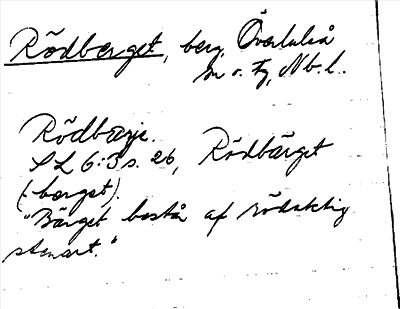 Rödberget, berg, Överluleå
sn o. tg, Nb. l.
Rödbärje.
SL 6:3 s. 26, Rödbärget
(-berget).
"Bärget består af rödaktig
stenart."